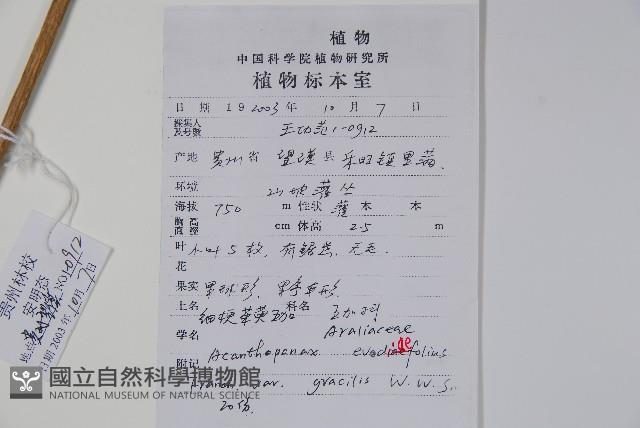 植物
中国科学院植物研究所
植物标本室
日期 19 2003年 10月 7日
采集人及号数 王功芳 1-0912
产地 贵州省 望谟县 乐旺镇里落
环境 山坡灌丛
海拔 750 m 性状 灌木 本
胸高直径 cm 体高 2.5 m
叶 小叶5数, 有锯齿, 无毛.
花
果实 果球形
土名 细梗 科名 五加科
学名 Araliaceae
附记 Acanthopanax evodiaefolius
ae
var. gracilis W. W. S.
20份
贵州林校
安明态
NO 1-0912
日期 2003年10月7日
國立自然科學博物館
NATIONAL MUSEUM OF NATURAL SCIENCE